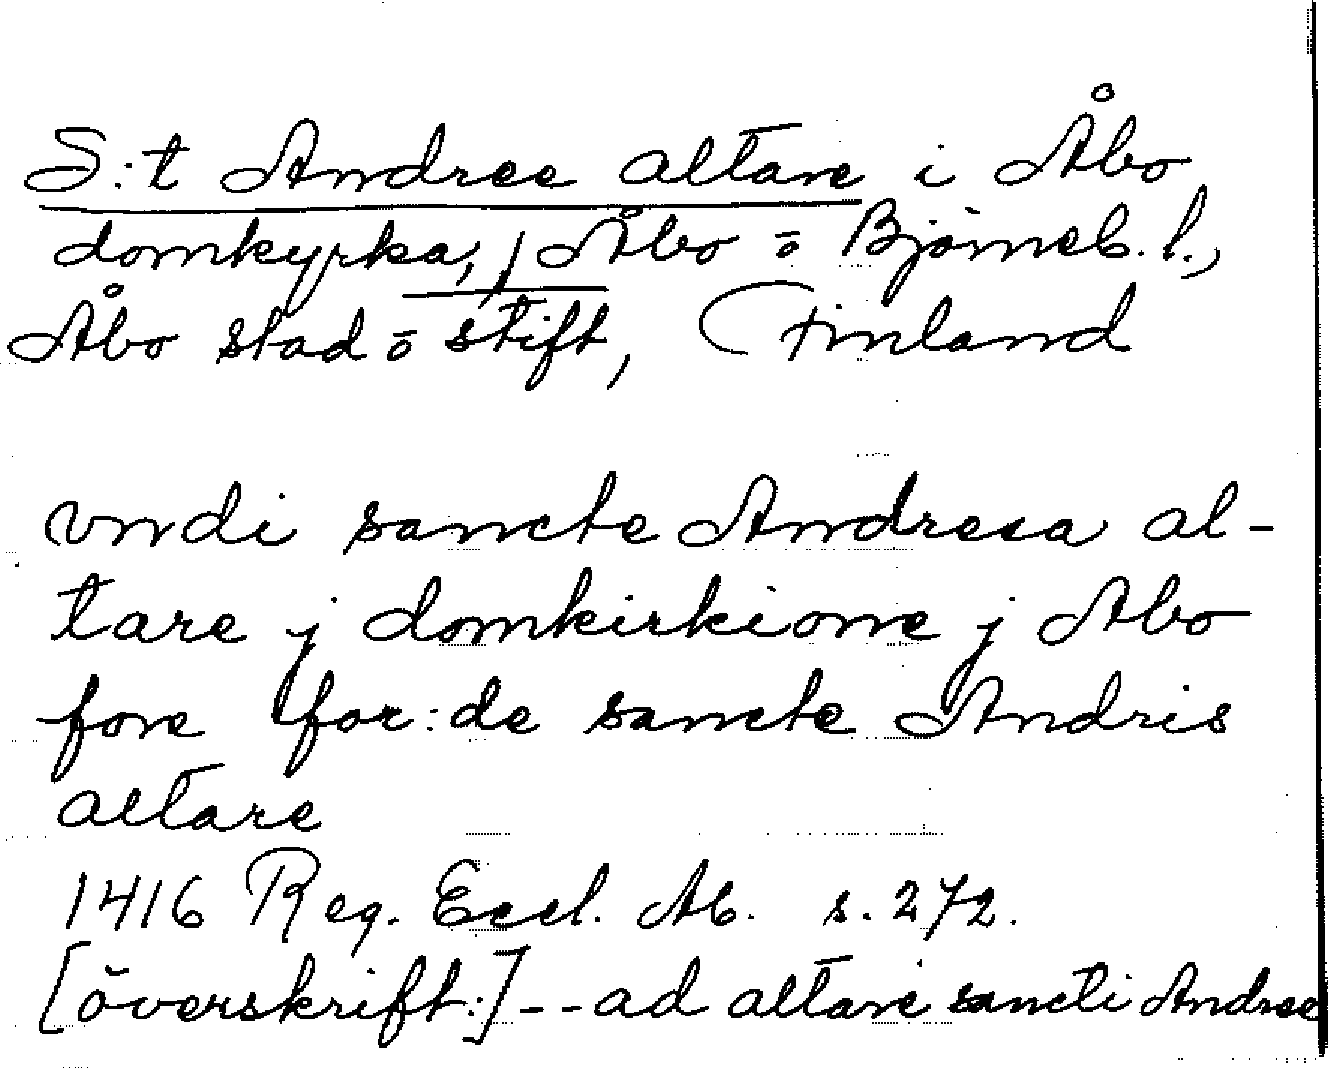 S:t Andree altare i Åbo
domkyrka, j Åbo o Björneb. l.,
Åbo stad o stift, Finland
vndi sancte Andresa al-
tare j domkirkione j Abo
fore for:de sancte Andris
altare
1416 Reg. Eccl. Ab. s. 272.
[överskrift:] -- ad altare sancti Andree